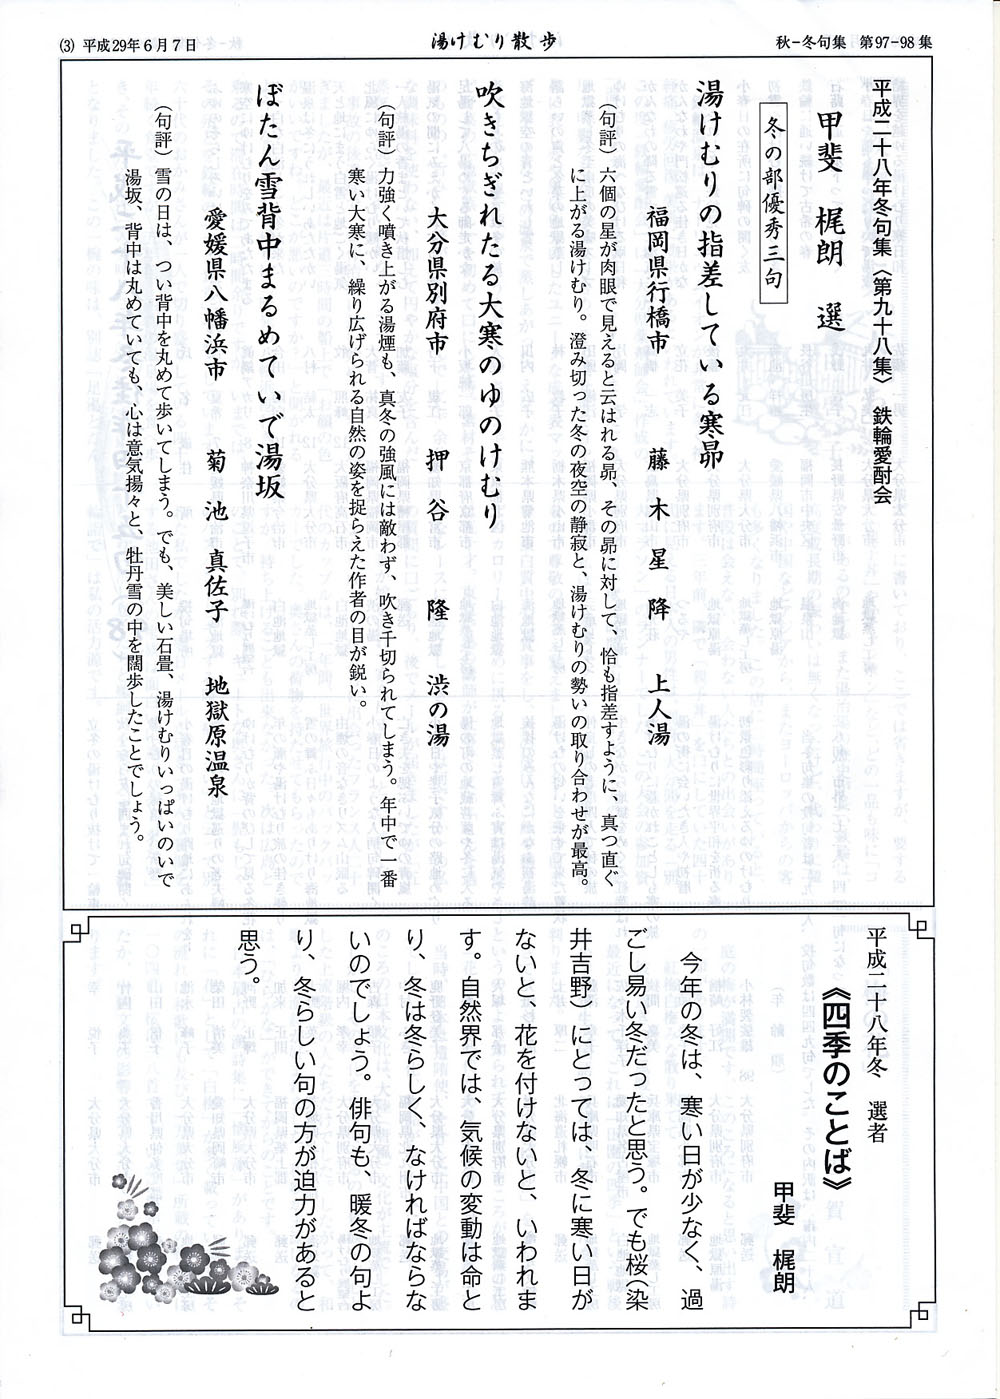 (3) 平成29年6月7日
湯けむり散歩
秋−冬句集 第97−98集
平成二十八年冬句集〈第九十八集〉 鉄輪愛酎会
甲斐 梶朗 選
冬の部優秀三句
湯けむりの指差している寒昴
福岡県行橋市 藤木星降 上人湯
(句評) 六個の星が肉眼で見えると云はれる昴、その昴に対して、恰も指差すように、真つ直ぐ
に上がる湯けむり。澄み切った冬の夜空の静寂と、湯けむりの勢いの取り合わせが最高。
吹きちぎれたる大寒のゆのけむり
大分県別府市 押谷 隆 渋の湯
(句評) 力強く噴き上がる湯煙も、真冬の強風には敵わず、吹き千切られてしまう。年中で一番
寒い大寒に、繰り広げられる自然の姿を捉らえた作者の目が鋭い。
ぼたん雪背中まるめていで湯坂
愛媛県八幡浜市 菊池 真佐子 地獄原温泉
(句評) 雪の日は、つい背中を丸めて歩いてしまう。でも、美しい石畳、湯けむりいっぱいのいで
湯坂、背中は丸めていても、心は意気揚々と、牡丹雪の中を闊歩したことでしょう。
平成二十八年冬 選者
《四季のことば》
甲斐 梶朗
今年の冬は、寒い日が少なく、過
ごし易い冬だったと思う。でも桜(染
井吉野)にとっては、冬に寒い日が
ないと、花を付けないと、いわれま
す。自然界では、気候の変動は命と
り、冬は冬らしく、なければならな
いのでしょう。俳句も、暖冬の句よ
り、冬らしい句の方が迫力があると
思う。